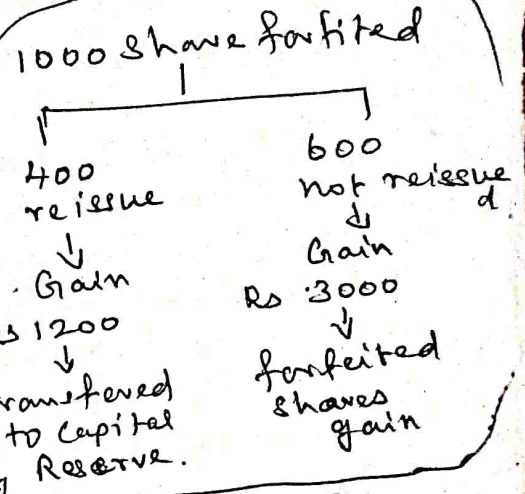 1000 share forfited
400
reissue
Gain
Rs 1200
transfered
to Capital
Reserve.
600
not reissue
d.
Gain
Rs 3000
forfeited
shares
gain